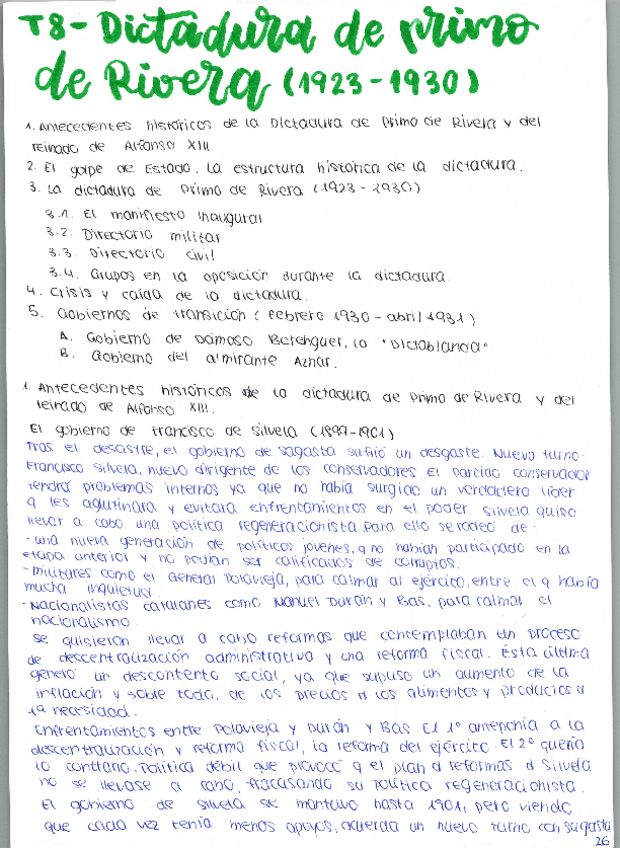 T8- Dictadura de primo
de Rivera (1923-1930)
1. Antecedentes históricos de la Dictadura de Primo de Rivera y del
reinado de Alfonso XIII.
2. El golpe de Estado. La estructura histórica de la dictadura.
3. La dictadura de Primo de Rivera (1923-1930)
3.1. El manifiesto inaugural
3.2. Directorio militar
3.3. Directorio civil
3.4. Grupos en la oposición durante la dictadura.
4. Crisis y caída de la dictadura.
5. Gobiernos de transición (febrero 1930 - abril 1931)
A. Gobierno de Dámaso Berenguer, la "Dictablanda"
B. Gobierno del almirante Aznar.
1. Antecedentes históricos de la dictadura de Primo de Rivera y del
reinado de Alfonso XIII.
El gobierno de Francisco de Silvela (1899-1901)
Tras el desastre, el gobierno de Sagasta sufrió un desgaste. Nuevo turno.
Francisco Silvela, nuevo dirigente de los conservadores. El partido conservador
tendrá problemas internos ya que no había surgido un verdadero líder
q les aglutinara y evitara enfrentamientos en el poder. Silvela quiso
llevar a cabo una política regeneracionista para ello se rodeó de:
- una nueva generación de políticos jóvenes, q no habían participado en la
etapa anterior y no podían ser calificados de corruptos.
- Militares como el General Polavieja, para calmar al ejército, entre el q había
mucha inquietud.
- Nacionalistas catalanes como Manuel Durán y Bas, para calmar el
nacionalismo.
Se quisieron llevar a cabo reformas que contemplaban un proceso
de descentralización administrativa y una reforma fiscal. Esta última
generó un descontento social, ya que supuso un aumento de la
inflación y sobre todo, de los precios d los alimentos y productos d
1ª necesidad.
Enfrentamientos entre Polavieja y Durán y Bas. El 1º anteponía a la
descentralización y reforma fiscal, la reforma del ejército. El 2º quería
lo contrario. Política débil que provocó q el plan d reformas d Silvela
no se llevase a cabo, fracasando su política regeneracionista.
El gobierno de Silvela se mantuvo hasta 1901, pero viendo
que cada vez tenía menos apoyos, acuerda un nuevo turno con Sagasta
26